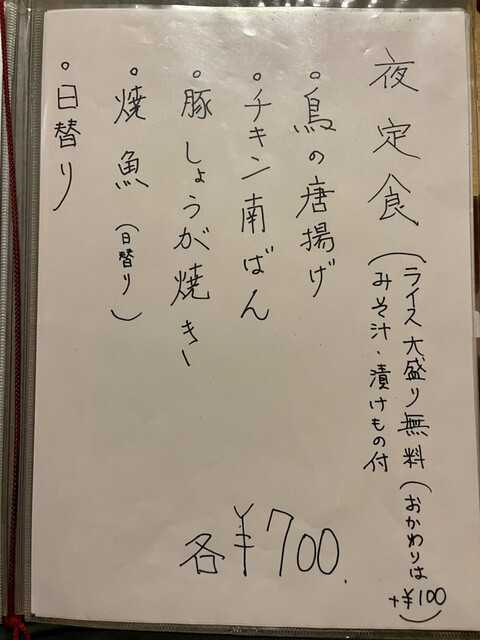 夜定食
(ライス大盛り無料(おかわりは
+¥100)
みそ汁・漬けもの付
・鳥の唐揚げ
・チキン南ばん
・豚しょうが焼き
・焼魚(日替り)
・日替り
各¥700.